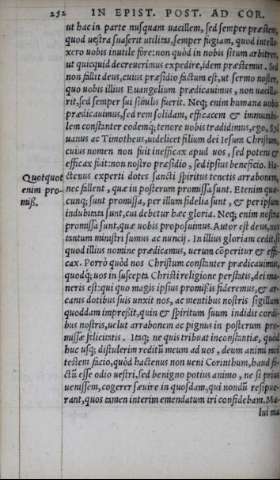 252 IN EPIST. POST. AD COR.
ut hac in parte nusquam vacillem, sed semper præstem,
quod uestra suaserit utilitas, semper fugiam, quod intelle-
xero uobis inutile fore: non quòd in nobis situm arbitror,
ut quicquid decreuerimus expedire, idem præstemus. Sed
non fallit deus, cuius præsidio factum est, ut sermo noster,
quo uobis illius Euangelium prædicauimus, non uacilla-
rit, sed semper sui similis fuerit. Neq; enim humana uobis
prædicauimus, sed rem solidam, efficacem & immutabi-
lem constanter eodemq; tenore uobis tradidimus, ego, Syl
uanus ac Timotheus, uidelicet filium dei Iesum Christum,
cuius nomen non fuit inefficax apud uos, sed potens &
efficax fuit: non nostro præsidio, sed ipsius beneficio. Ha-
Quotquot
enim pro-
miss.
ctenus experti dotes sancti spiritus tenetis arrabonem,
nec fallent, quæ in posterum promissa sunt. Etenim quæ-
cunq; sunt promissa, per illum fidelia sunt, & per ipsum
indubitata sunt, cui debetur hæc gloria. Neq; enim nostra
promissa sunt, quæ uobis proposuimus. Autor est deus, nos
tantum ministri sumus ac nuncij. In illius gloriam cedit, si
quod illius nomine prædicamus, uerum cõperitur & effi-
cax. Porrò quòd nos Christum constanter prædicauimus,
quodq; uos in suscepta Christi religione perstatis, dei mu-
neris est: qui quo magis ipsius promissis fideremus, & ar-
canis dotibus suis unxit nos, ac mentibus nostris sigillum
quoddam impressit, quin & spiritum suum indidit cordi-
bus nostris, uelut arrabonem ac pignus in posterum pro-
missæ felicitatis. Itaq; ne quis tribuat inconstantiæ, quòd
huc usq; distulerim reditũ meum ad uos, deum animi mei
testem facio, quòd hactenus non ueni Corinthum, haud fa-
ctũ esse odio uestri, sed benigno potius animo, ne si prius
uenissem, cogerer sæuire in quosdam, qui nondũ resipue-
rant, quos tamen interim emendatum iri confidebam. Ma-
lui ma